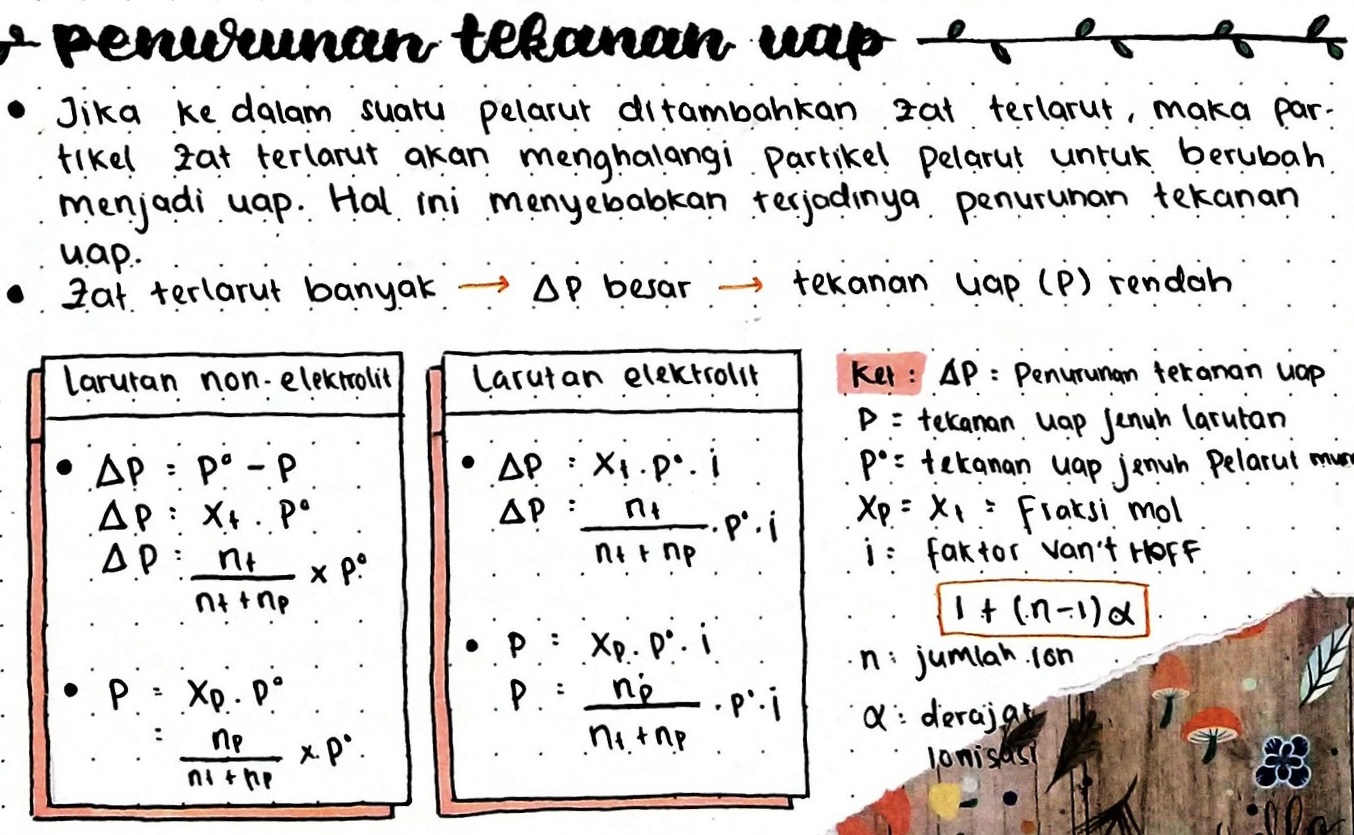 penurunan tekanan uap
• Jika ke dalam suatu pelarut ditambahkan zat terlarut, maka par-
tikel zat terlarut akan menghalangi partikel pelarut untuk berubah
menjadi uap. Hal ini menyebabkan terjadinya penurunan tekanan
uap.
• Zat terlarut banyak → ΔP besar → tekanan uap (P) rendah
Larutan non-elektrolit
• ΔP = P° - P
ΔP = Xt . P°
ΔP = nt / (nt + np) x P°
• P = Xp . P°
= np / (nt + np) x P°
Larutan elektrolit
• ΔP = Xt . P° . i
ΔP = nt / (nt + np) . P° . i
• P = Xp . P° . i
P = np / (nt + np) . P° . i
Ket : ΔP : Penurunan tekanan uap
P = tekanan uap jenuh larutan
P° = tekanan uap jenuh pelarut
Xp = Xt = Fraksi mol
i = faktor Van't HOFF
1 + (n-1)α
n : jumlah ion
α : derajat
ionisasi